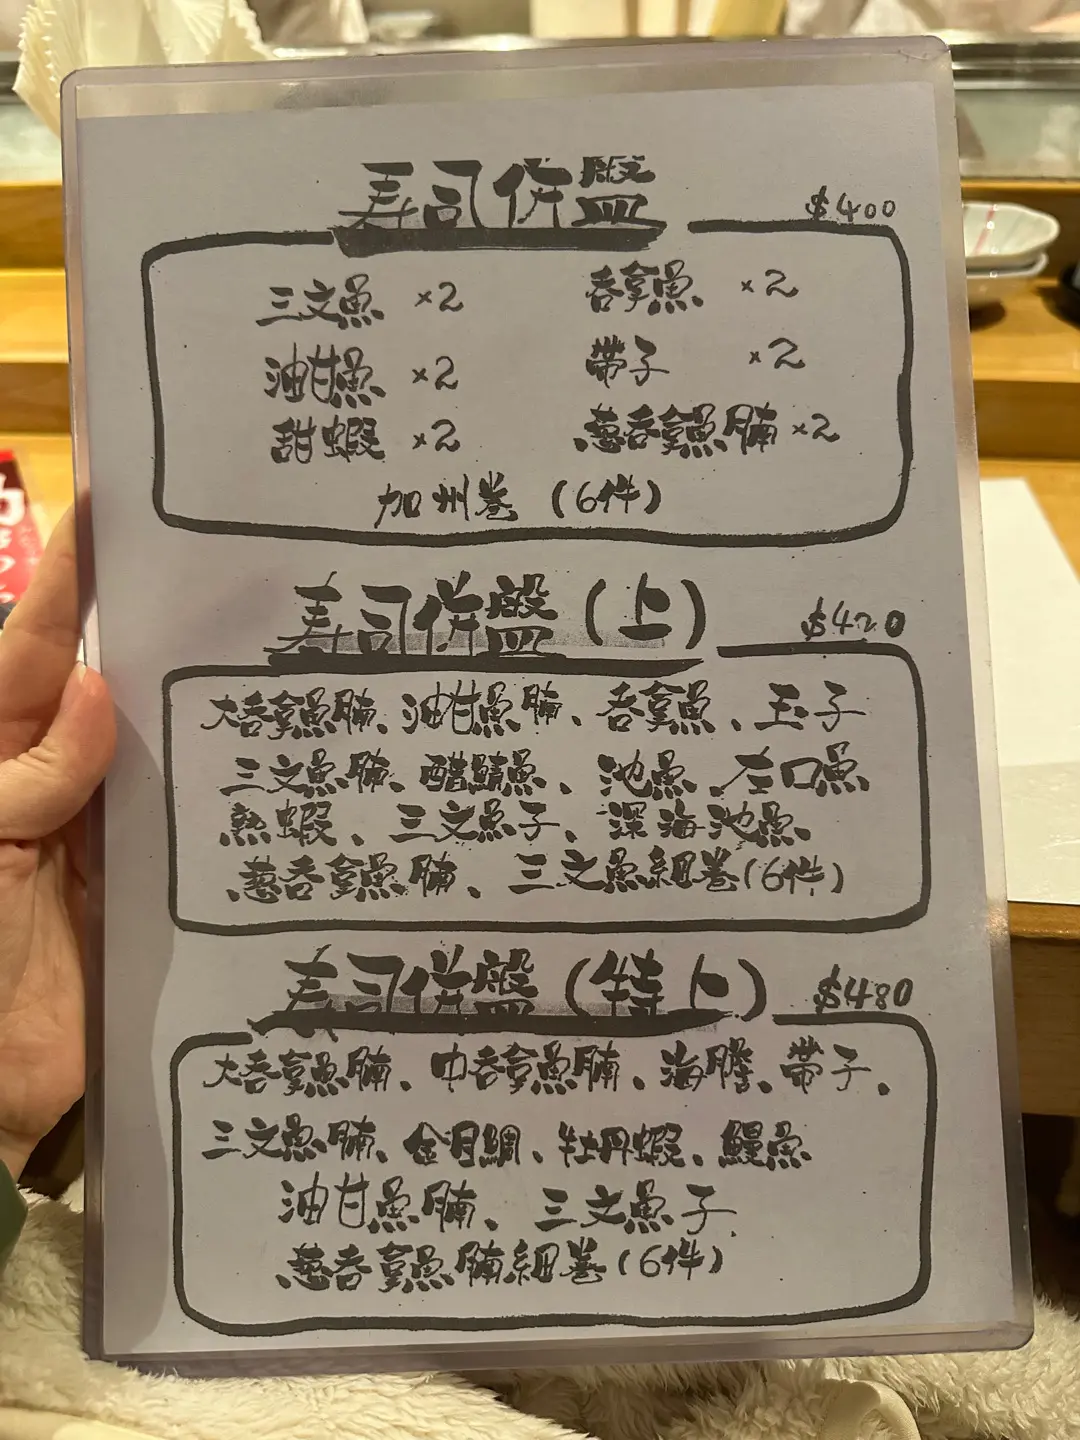 寿司併盤
$400
三文魚 ×2 吞拿魚 ×2
油甘魚 ×2 帶子 ×2
甜蝦 ×2 葱吞拿魚腩 ×2
加州卷 (6件)
寿司併盤 (上)
$420
大吞拿魚腩、油甘魚腩、吞拿魚、玉子
三文魚腩、醋鯖魚、池魚、左口魚
熟蝦、三文魚子、深海池魚、
葱吞拿魚腩、三文魚細卷(6件)
寿司併盤 (特上)
$480
大吞拿魚腩、中吞拿魚腩、海膽、帶子、
三文魚腩、金目鯛、牡丹蝦、鰻魚
油甘魚腩、三文魚子、
葱吞拿魚腩細卷(6件)